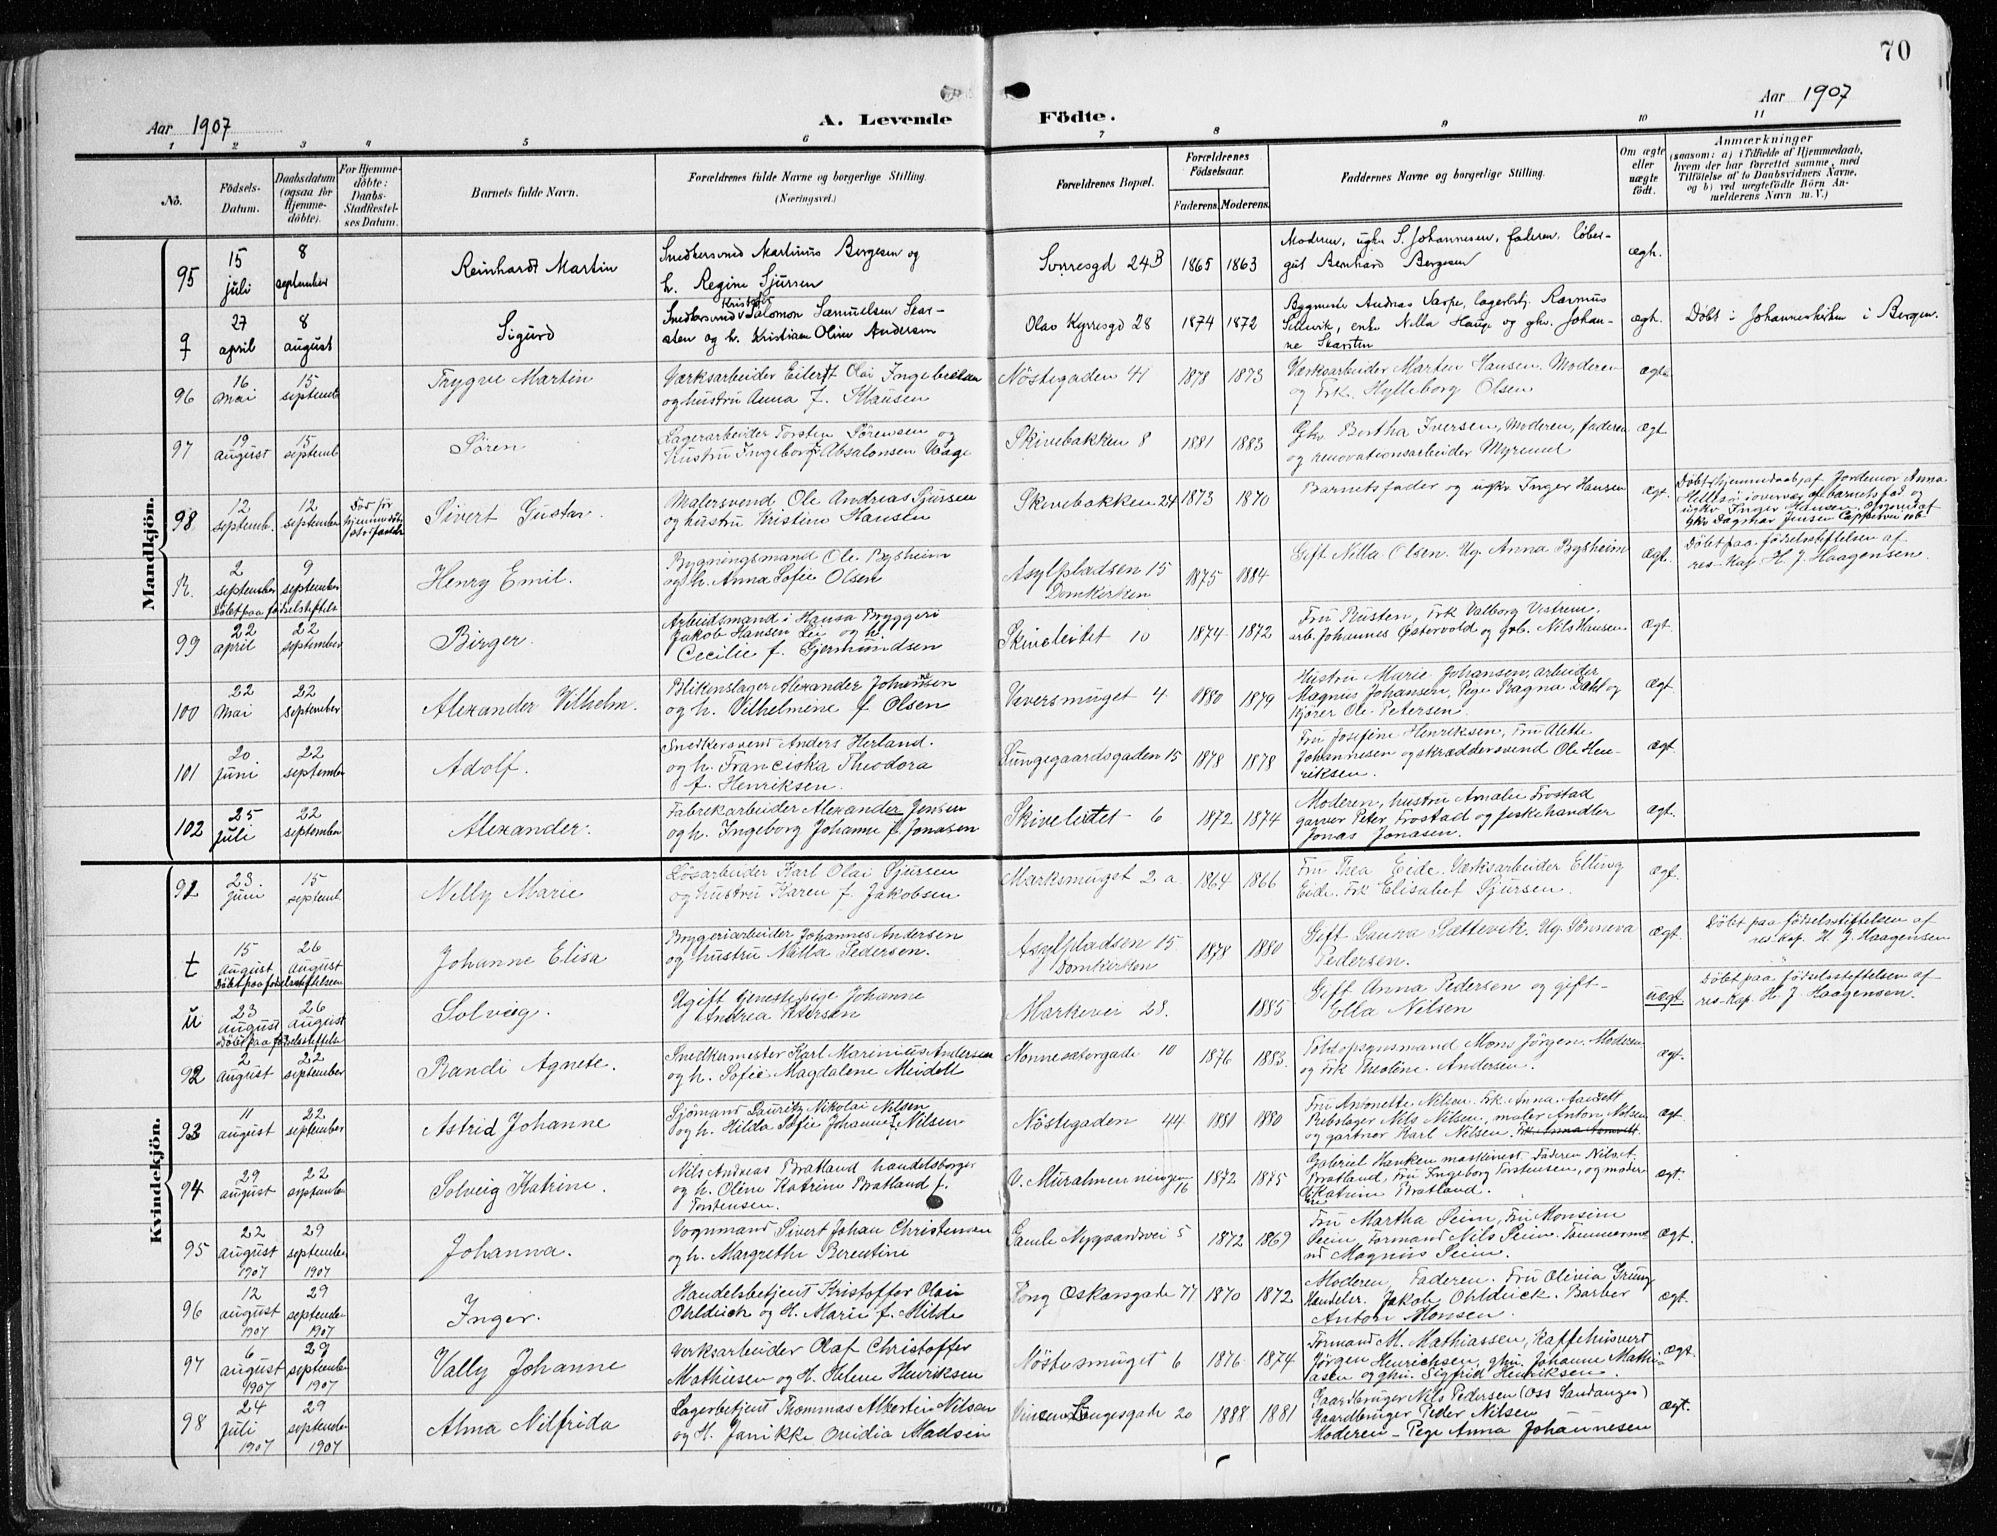 70
Aar 1907
A. Levende
Födte.
Aar 1907
1 2 3 4 5 6 7 8 9 10 11
No.
Födsels-
Datum.
Daabsdatum
(ogsaa for
Hjemme-
döbte).
For Hjemme-
döbte:
Daabs-
Stadfæstel-
ses Datum.
Barnets fulde Navn.
Forældrenes fulde Navne og borgerlige Stilling.
(Næringsvei.)
Forældrenes Bopæl.
Forældrenes
Födselsaar.
Faderens. Moderens.
Faddernes Navne og borgerlige Stilling.
Om ægte
eller
uægte
födt.
Anmærkninger
(saasom: a) i Tilfælde af Hjemmedaab,
hvem der har forrettet samme, med
Tilföielse af to Daabsvidners Navne,
og b) ved uægtefödte Börn An-
melderens Navn m. V.)
Mandkjön.
95
15
juli
8
september
Reinhardt Martin
Snedkersvend Martinus Bergesen og
h. Regine Sjursen
Sverresgd 24B
1865 1863
Moderen, ugkv S. Johannesen, faderen, løber-
gut Bernhard Bergesen
ægh.
q
27
april
8
august
Sigurd
Kristoffer
Snedkersvend Salomon Samuelsen Skar-
sten og h. Kristiane Oline Andersen
Olav Kyrresgd 28
1874 1872
Bygmester Andreas Tarpe, lagerbstj. Rasmus
Sellevik, enke Nilla Hauge og ghv. Johan-
ne Skarsten
ægh.
Döbt i Johanneskirken i Bergen.
96
16
mai
15
septemb
Trygve Martin
Værksarbeider Eilert Olai Ingebretsen
og hustru Anna f. Klausen
Nöstegaden 41
1878 1873
Værksarbeider Marten Hansen. Moderen
og Frk. Hylleborg Olsen
ægt.
97
19
august
15
septemb
Sören
Lagerarbeider Torsten Sörensen og
Hustru Ingeborg f. Absalonsen Vaage
Skivebakken 8
1881 1883
Ghv Bertha Iversen, Moderen, faderen
og renovationsarbeider Myremel
ægt
98
12
septemb.
12
september
Sivert Gustav.
Malersvend Ole Andreas Sjursen
og hustru Kristine Hansen
Skivebakken 24
1873 1870
Barnets fader og ugkv. Inger Hansen
ægt.
Döbt hjemmedaab af Jordemor Anna
i overvær af barnets fad. og
ugkv Inger Hansen.
Ghv Dagmar Jensen
R.
2
september
9
september
Döbt paa födselsstiftels
Henry Emil.
Bygningsmand Ole Bysheim
og h. Anna Sofie Olsen
Asylpladsen 15
Domkirken
1875 1884
Gift Nilla Olsen. Ug. Anna Bysheim
ægt.
Döbt paa födselsstiftelsen af
res-kap. H. J. Haagensen.
99
22
april
22
september
Birger.
Arbeidsmand i Hansa Bryggeri
Jakob Hansen Lie og h.
Cecilie f. Gjermundsen
Skiveleitet 10
1874 1872
Fru Rusten, Frk Valborg Vestrem.
arb. Johannes Østervold og grb. Nils Hansen
ægt.
100
22
Mai
22
september
Alexander Vilhelm.
Blikenslager Alexander Johannesen
og h. Vilhelmine f. Olsen
Veversmuget 4.
1880 1879
Hustru Marie Johansen, arbeider
Magnus Johansen, Pige Ragna Dahl og
kjörer Ole Petersen.
ægt.
101
20
juni
22
september
Adolf.
Snedkersvend Anders Herland.
og h. Franciska Theodora
f. Henriksen.
Lungegaardsgaden 15
1878 1878
Fru Josefine Henriksen, Fru Alette
Johannesen og skræddersvend Ole Hen-
riksen.
ægt.
102
25
juli
22
september
Alexander.
Fabrikarbeider Alexander Jensen
og h. Ingeborg Johanne f. Jonasen
Skiveleitet 6
1872 1874
Moderen, hustru Amalie Frostad
garver Peter Frostad og fiskehandler
Jonas Jonasen.
ægt.
Kvindekjön.
91
23
juni
15
septemb.
Nelly Marie
Løsarbeider Karl Olai Sjursen
og hustru Karen f. Jakobsen
Marksmuget 2 a.
1864 1866
Fru Thea Eide. Værksarbeider Elling
Eide. Frk Elisabet Sjursen.
ægt.
t
15
august
26
august
Döbt paa födselsstiftelsen
Johanne Elisa
Bryggeriarbeider Johannes Andersen
og hustru Nilla Pedersen.
Asylpladsen 15.
Domkirken
1878 1880
Gift Laura Sættevik. Ug. Sönneva
Pedersen.
ægt.
Döbt paa födselsstiftelsen af
res.kap. H. J. Haagensen
u
23
august
26
august
Döbt paa födselsstiftelse
Solveig.
Ugift tjenestepige Johanne
Andrea Petersen
Markevei 28.
1885
Gift Anna Pedersen og gift-
Ella Nilsen
uægt.
Döbt paa födselsstiftelsen af
res-kap. H. J. Haagensen.
92
2
august
22
september
Randi Agnete.
Snedkermester Karl Marinius Andersen
og h. Sofie Magdalene Meidell
Nonnesætergade 10
1876 1883.
Toldopsynsmand Mons Jörgen. Moderen
og Frk Theoline Andersen.
ægt.
93
11
august
22
september
Astrid Johanne
Sjömand Lauritz Nikolai Nilsen
og h. Hilda Sofie Johanne f. Nilsen
Nöstegaden 44
1881 1880
Fru Antonette Nilsen. Frk. Anna Aasvett
Rebslager Nils Nilsen, maler Anton Nilsen
og gartner Karl Nilsen.
ægt.
94
29
august
22
septembe
Solveig Katrine.
Nils Andreas Bratland handelsborger
og h. Oline Katrine Bratland f.
Torstensen.
V. Muralmenningen
16
1872 1875
Gabriel Hanken maskinist Faderen Nils A.
Bratland, Fru Ingeborg Torstensen, og moder
Katrine Bratland.
ægt.
95
22
august
1907
29
septembe.
1907
Johanna.
Vognmand Sivert Johan Christensen
og h. Margrethe Berentine
Gamle Nygaardsvei 5
1872 1869
Fru Martha Seim, Fru Monsine
Seim, Formand Nils Seim. Tömmerma
nd Magnus Seim.
ægt.
96
12
august
1907
29
septembe-
1907
Inger.
Handelsbetjent Kristoffer Olai
Ohldieck og H. Marie f. Milde
Kong Oskarsgade 77
1870 1872
Moderen, Faderen. Fru Olivia Grung
Handeler. Jakob Ohldieck. Barber
Anton Monsen.
ægt.
97
6
august
1907
29
septembe
1907
Vally Johanne
Verksarbeider Olaf Christoffer
Mathiesen og H. Helene Henriksen
Nöstesmuget 6
1876 1874
Formand M. Mathiassen, Kaffehusvert
Jörgen Henrichsen, ghv. Johanne Mathi-
asen og ghv. Sigfrid Henriksen.
ægt.
98
24
juli
1907
29
septembe-
1907
Alma Nilfrida
Lagerbetjent Thommas Albertin Nilsen
og H. Janikke Ovidia Madsen
Vincens Lungesgade 20
1888 1881
Gaardbruger Nils Pedersen (Oss Sandanger)
Gaardbruger Peder Nilsen
Moderen - Pige Anna Johannesen
ægt.